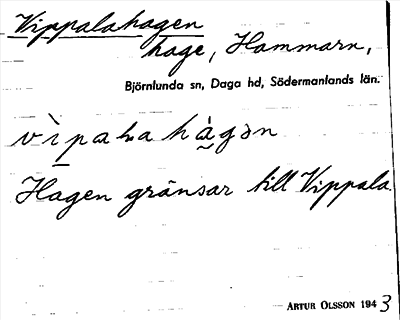 Vippalahagen
hage, Hammarn,
Björnlunda sn, Daga hd, Södermanlands län.
Hagen gränsar till Vippala
ARTUR OLSSON 1943